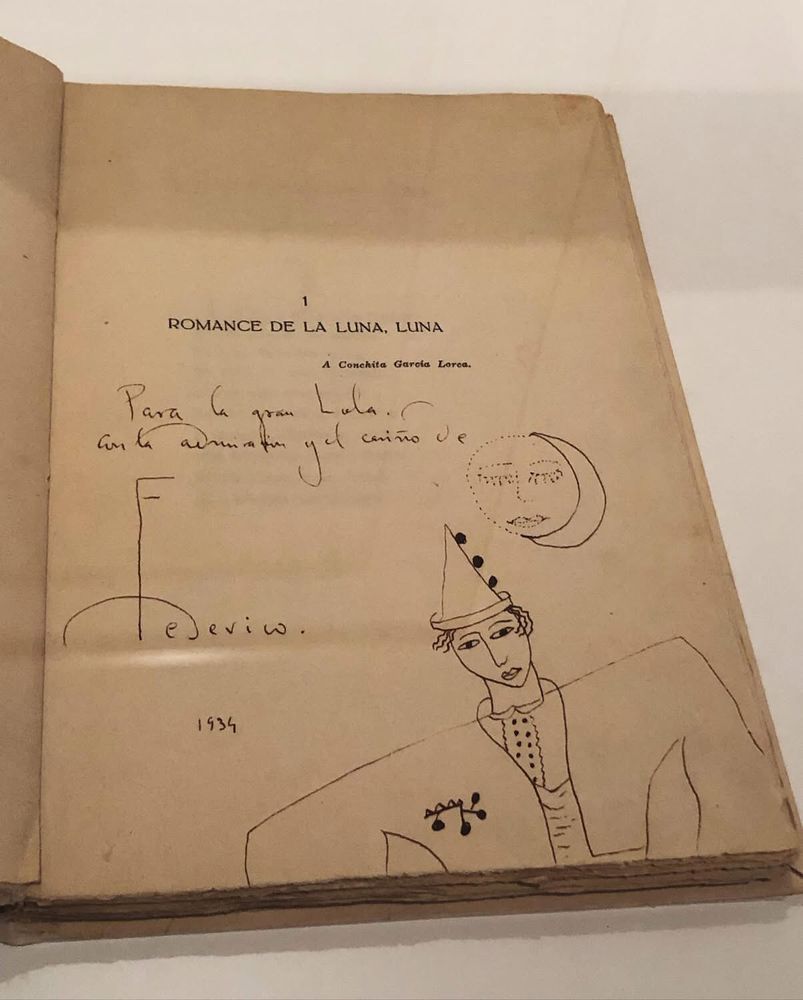 1
ROMANCE DE LA LUNA, LUNA
A Conchita García Lorca.
Para la gran Lola.
con la admiración y el cariño de
Federico.
1934